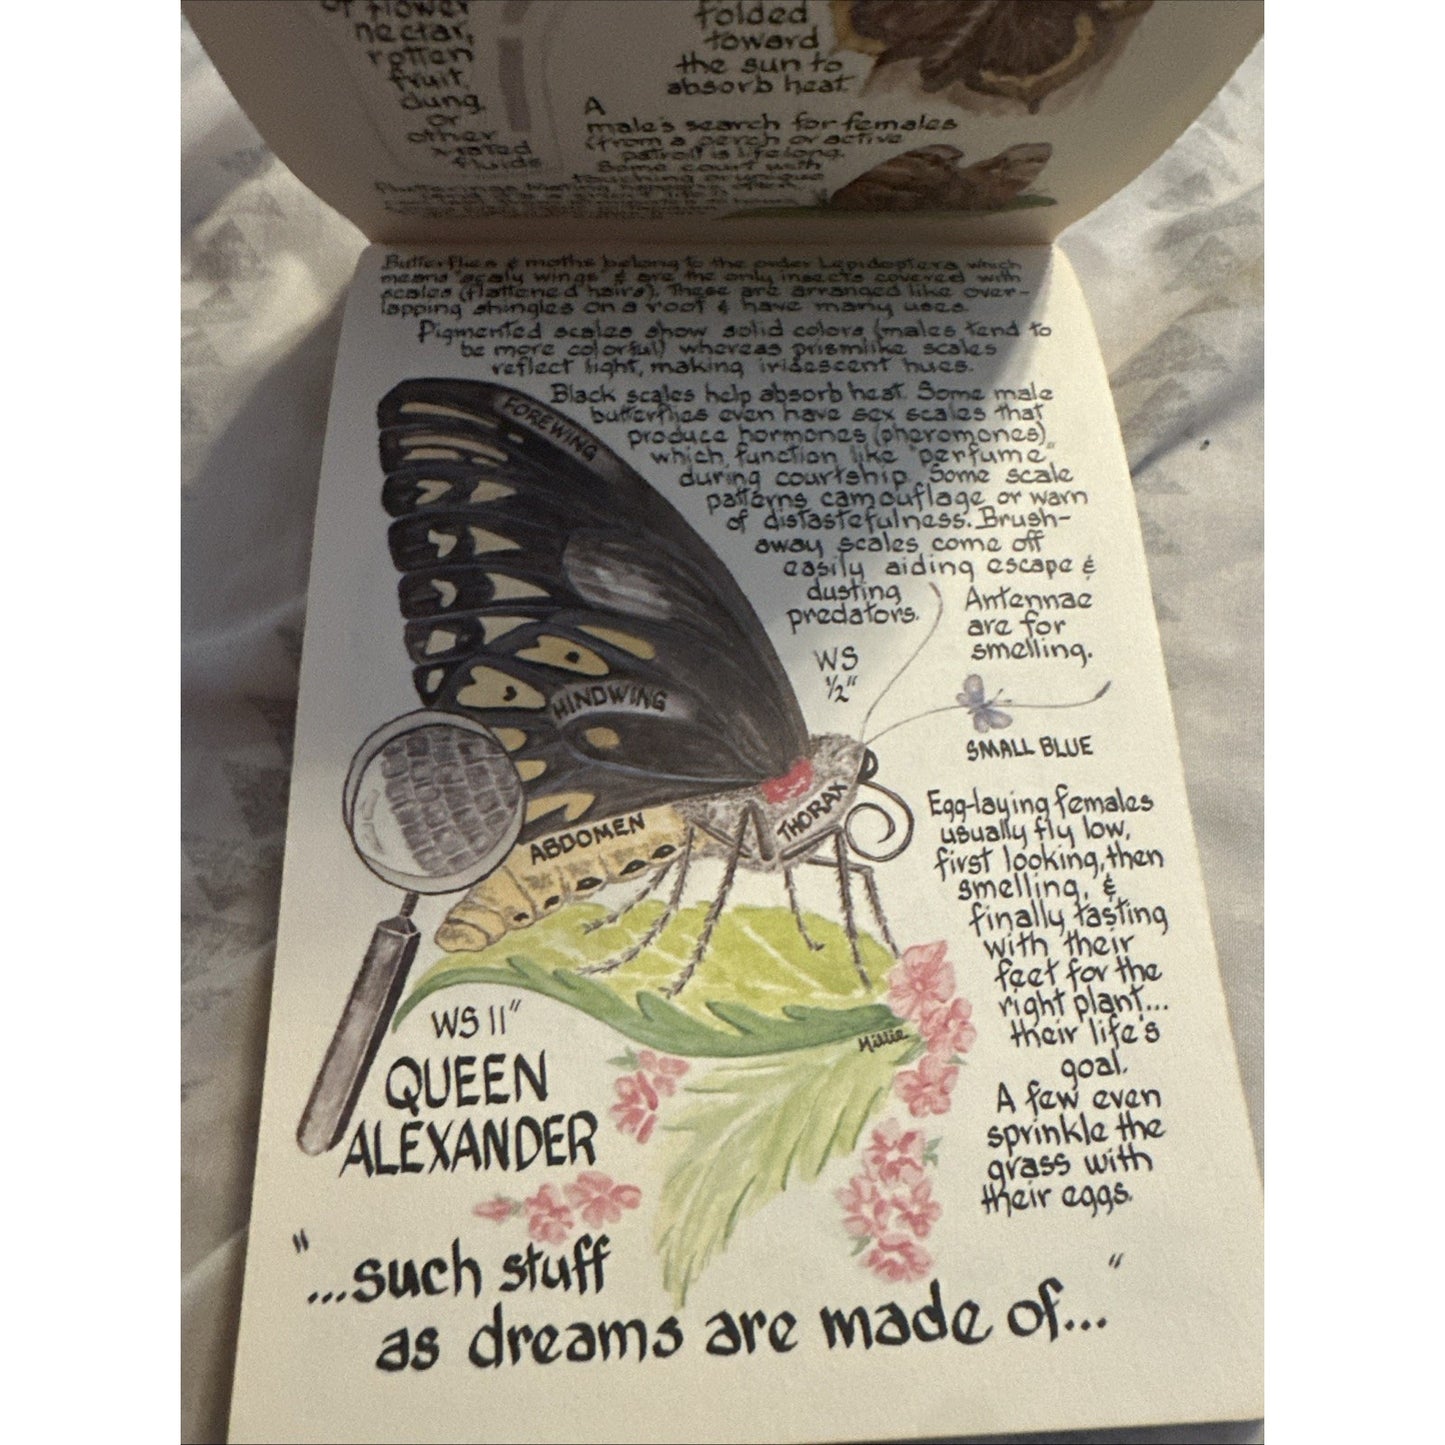 of flower
nectar,
rotten
fruit,
dung,
or
other
x-rated
fluids
folded
toward
the sun to
absorb heat.
A
male's search for females
(from a perch or active
patrol) is lifelong.
Some court with
touching or unique
Butterflies & moths belong to the order Lepidoptera which
means "scaly wings" & are the only insects covered with
scales (flattened hairs). These are arranged like over-
lapping shingles on a roof & have many uses.
Pigmented scales show solid colors (males tend to
be more colorful) whereas prismlike scales
reflect light, making iridescent hues.
Black scales help absorb heat. Some male
butterflies even have sex scales that
produce hormones (pheromones)
which function like "perfume"
during courtship. Some scale
patterns camouflage or warn
of distastefulness. Brush-
away scales come off
easily aiding escape &
dusting
predators.
FOREWING
HINDWING
ABDOMEN
THORAX
Antennae
are for
smelling.
WS
½"
SMALL BLUE
Egg-laying females
usually fly low,
first looking, then
smelling, &
finally tasting
with their
feet for the
right plant...
their life's
goal.
A few even
sprinkle the
grass with
their eggs.
Millie
WS 11"
QUEEN
ALEXANDER
"...such stuff
as dreams are made of..."